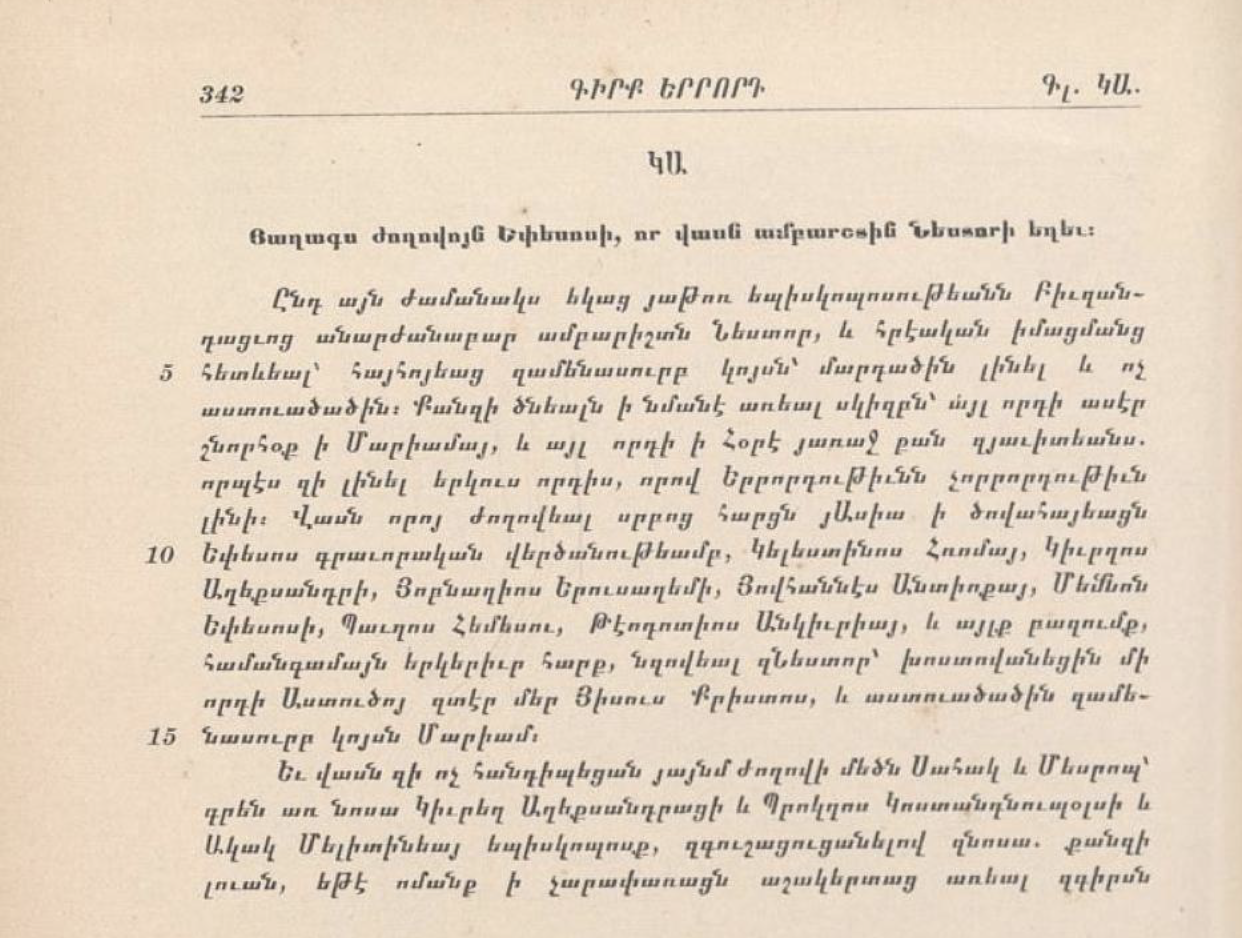 342 ԳԻՐՔ ԵՐՐՈՐԴ Գլ. ԿԱ.
ԿԱ
Յաղագս ժողովոյն Եփեսոսի, որ վասն ամբարշտին Նեստորի եղեւ։
Ընդ այն ժամանակս եկաց յաթոռ եպիսկոպոսութեանն Բիւզան-
դացւոց անարժանաբար ամբարիշտն Նեստոր, և հրէական իմացմանց
5 հետևեալ՝ հայհոյեաց զամենասուրբ կոյսն՝ մարդածին լինել և ոչ
աստուածածին։ Քանզի ծնեալն ի նմանէ առեալ սկիզբն՝ այլ որդի ասէր
շնորհօք ի Մարիամայ, և այլ որդի ի Հօրէ յառաջ քան զյաւիտեանս.
որպէս զի լինել երկուս որդիս, որով Երրորդութիւնն չորրորդութիւն
լինի։ Վասն որոյ ժողովեալ սրբոց հարցն յԱսիա ի ծովահայեացն
10 Եփեսոս գրաւորական վերծանութեամբ, Կելեստինոս Հռոմայ, Կիւրղոս
Աղեքսանդրի, Յորնաղիոս Երուսաղեմի, Յովհաննէս Անտիոքայ, Մեմնոն
Եփեսոսի, Պաւղոս Հեմեսու, Թէոդոտիոս Անկիւրիայ, և այլք բազումք,
համանգամայն երկերիւր հարք, նզովեալ զՆեստոր՝ խոստովանեցին մի
որդի Աստուծոյ զտէր մեր Յիսուս Քրիստոս, և աստուածածին զամե-
15 նասուրբ կոյսն Մարիամ։
Եւ վասն զի ոչ հանդիպեցան յայնմ ժողովի մեծն Սահակ և Մեսրոպ՝
գրեն առ նոսա Կիւրեղ Աղեքսանդրացի և Պրոկղոս Կոստանդնուպօլսի և
Ակակ Մելիտինեայ եպիսկոպոսք, զգուշացուցանելով զնոսա. քանզի
լուան, եթէ ոմանք ի չարափառացն աշակերտաց առեալ զգիրսն